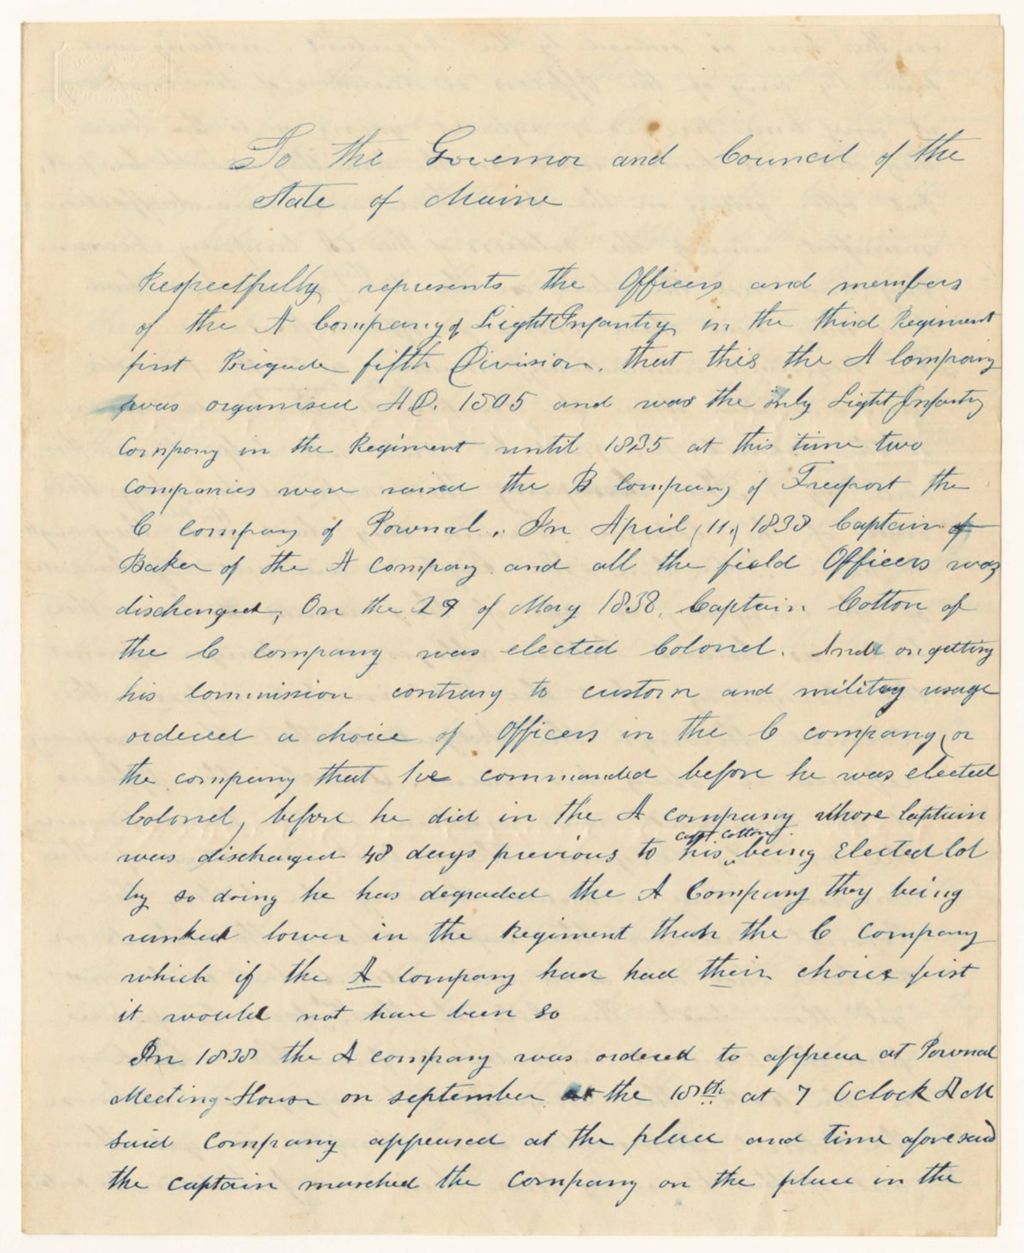 To the Governor and Council of the
State of Maine
Respectfully represents the Officers and members
of the A Company of Light Infantry in the third Regiment
first Brigade fifth Division. that this the A Company
was organised AD. 1805 and was the only Light Infantry
Company in the Regiment until 1835 at this time two
companies were raised the B Company of Freeport the
C company of Pownal. In April (11,) 1838 Captain of
Baker of the A Company and all the field Officers was
discharged, On the 29 of May 1838, Captain Cotton of
the C company was elected Colonel. And on getting
his Commission contrary to custom and military usage
ordered a choice of Officers in the C company, or
the company that he commanded before he was elected
Colonel, before he did in the A company whose Captain
Capt Cotton
was discharged 48 days previous to his being Elected Col
by so doing he has degraded the A Company they being
ranked lower in the Regiment than the C Company
which if the A company had had their choice first
it would not have been so
In 1838 the A company was ordered to appear at Pownal
Meeting-House on september the 18th at 7 Oclock AM
said Company appeared at the place and time aforesaid
the captain marched the company on the place in the